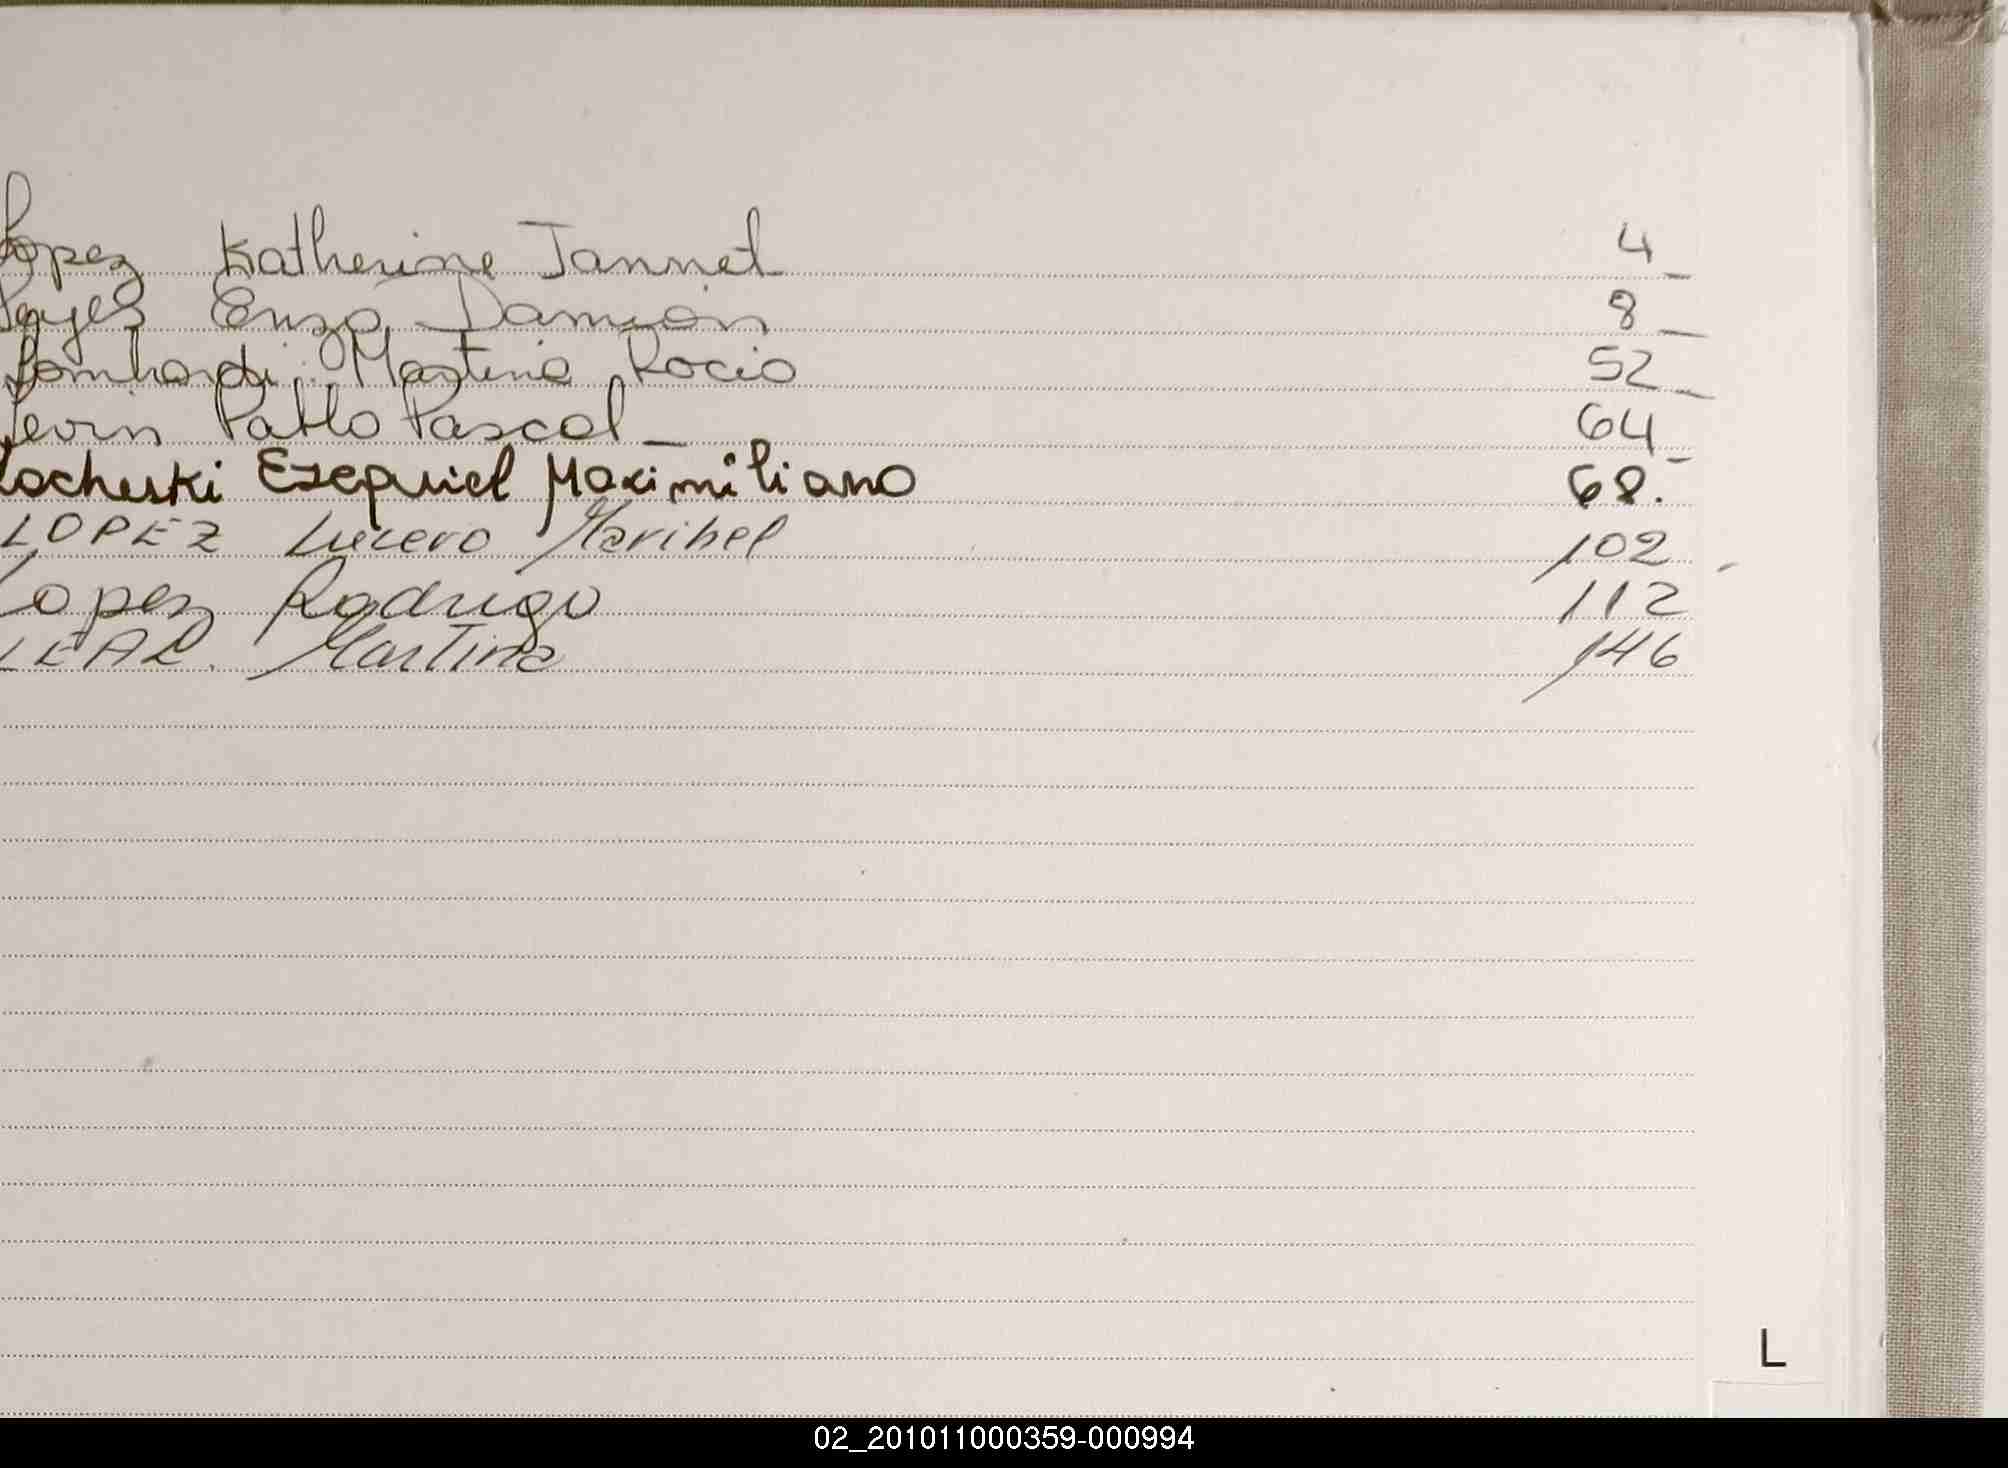 Lopez Katherine Jannet 4
Leyes Enzo Damián 8
Lombardi Martina Rocio 52
Levin Pablo Pascal 64
Locheski Ezequiel Maximiliano 68.
LOPEZ Lucero Maribel 102
Lopez Rodrigo 112
LEAL. Martina 146
L
02_201011000359-000994